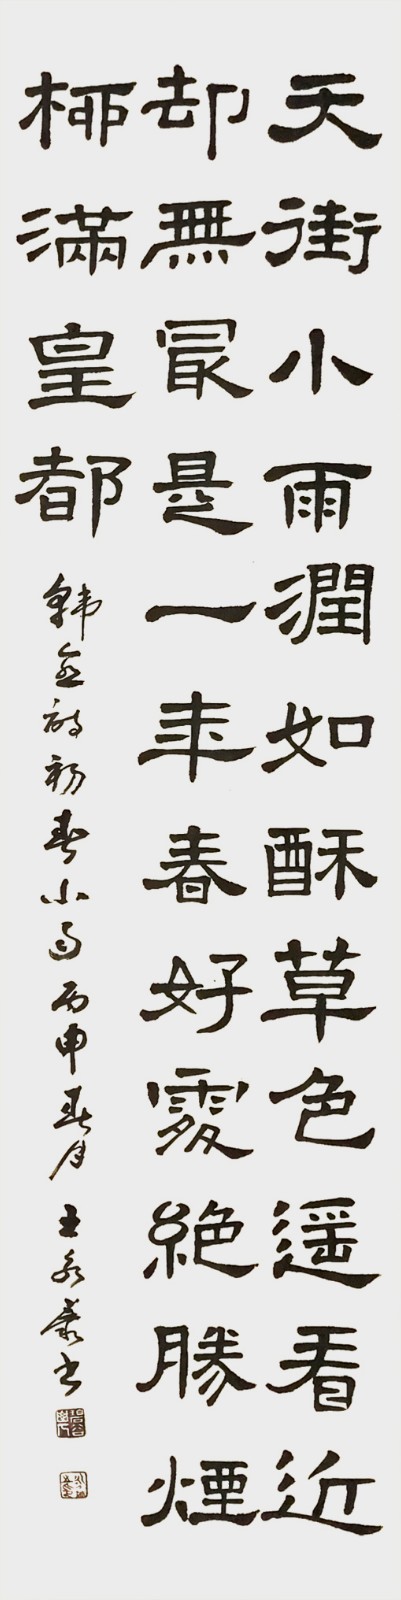 天街小雨潤如酥草色遥看近
却無最是一年春好處絶勝煙
柳滿皇都
韓愈詩初春小雨丙申春月王永書